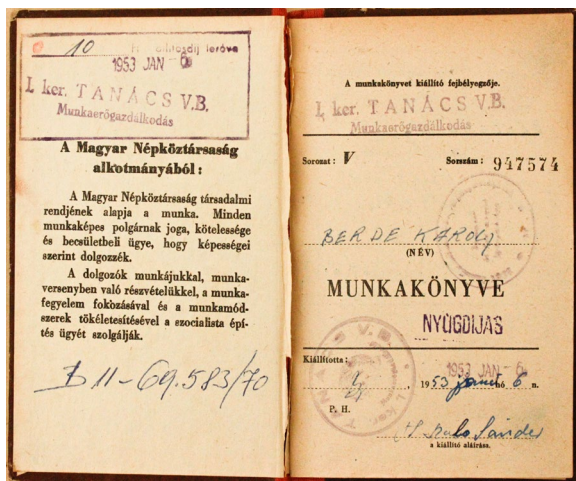 10 H díj leróva
1953 JAN 6
I. ker. TANÁCS V.B.
Munkaerőgazdálkodás
A Magyar Népköztársaság
alkotmányából:
A Magyar Népköztársaság társadalmi
rendjének alapja a munka. Minden
munkaképes polgárnak joga, kötelessége
és becsületbeli ügye, hogy képességei
szerint dolgozzék.
A dolgozók munkájukkal, munka-
versenyben való részvételükkel, a munka-
fegyelem fokozásával és a munkamód-
szerek tökéletesítésével a szocialista épí-
tés ügyét szolgálják.
B 11-69.583/70
A munkakönyvet kiállító fejbélyegzője.
I. ker. TANÁCS V.B.
Munkaerőgazdálkodás
Sorozat: V Sorszám: 947574
BERDE KÁROLY
(NÉV)
MUNKAKÖNYVE
NYUGDIJAS
Kiállította:
1953 JAN 6
1953 jan hó 6 n.
P. H.
Sándor
a kiállító aláírása.